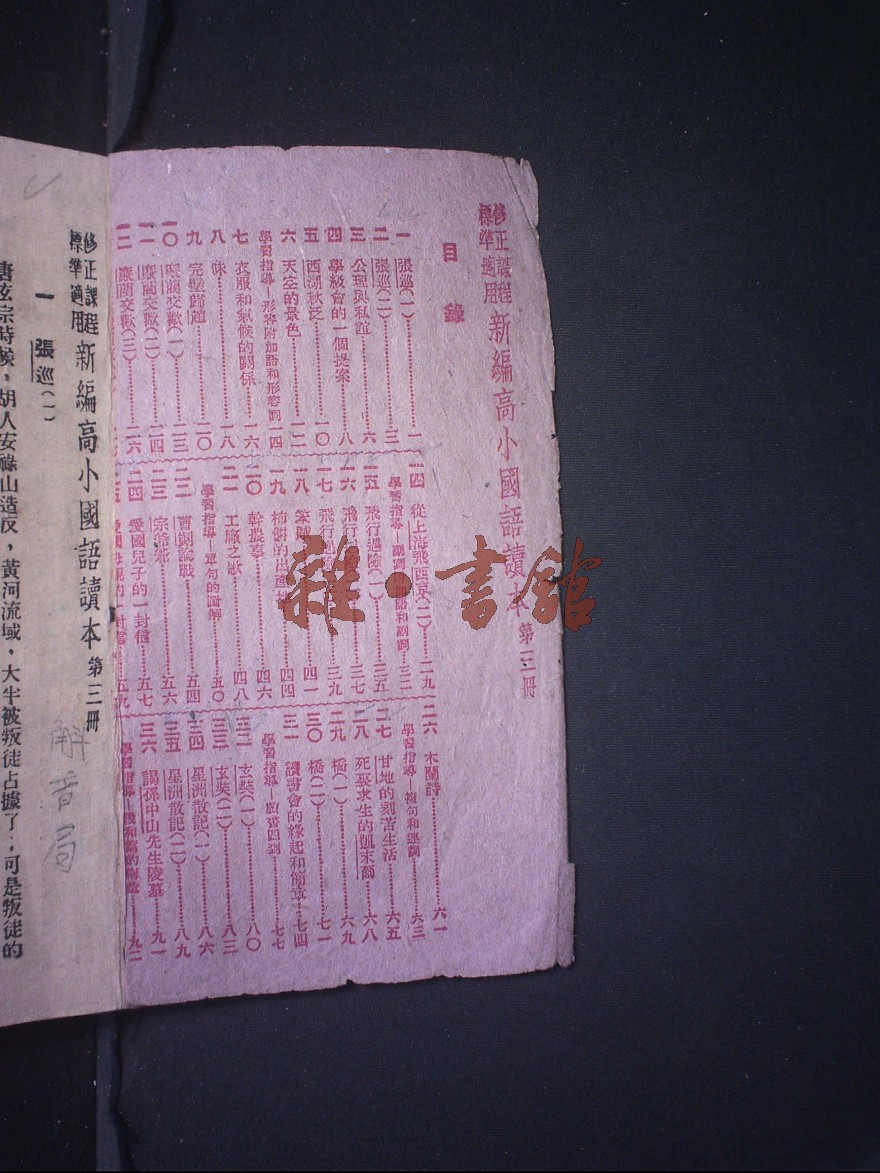 修正課程標準適用 新編高小國語讀本 第三冊
目錄
一 張巡(一)……一
二 張巡(二)……三
三 公理與私誼……六
四 學級會的一個提案……八
五 西湖秋泛……一〇
六 天空的景色……一二
學習指導—形容附加語和形容詞……一四
七 衣服和氣候的關係……一六
八 味……一八
九 完璧歸趙……二〇
一〇 廉藺交歡(一)……二三
一一 廉藺交歡(二)……二四
一二 廉藺交歡(三)……二六
一四 從上海飛西京(二)……二九
學習指導—副詞附加語和副詞……三二
一五 飛行遇險(一)……三五
一六 飛行……三七
一七 飛行……三九
一八 笨賊……四一
一九 柿餅的出產……四四
二〇 幹農事……四六
二一 工廠之歌……四八
學習指導—單句的圖解……五〇
二二 曹劌論戰……五四
二三 宗爺爺……五六
二四 愛國兒子的一封信……五七
二五 一封信……五九
二六 木蘭詩……六一
學習指導—複句和連詞……六三
二七 甘地的刻苦生活……六五
二八 死裏求生的凱末爾……六八
二九 橋(一)……六九
三〇 橋(二)……七一
三一 讀書會的緣起和簡章……七四
學習指導—讀書四到……七七
三二 玄奘(一)……八〇
三三 玄奘(二)……八三
三四 星洲散記(一)……八六
三五 星洲散記(二)……八九
三六 謁孫中山先生陵墓……九一
學習指導……九二
雜·書館
修正課程標準適用 新編高小國語讀本 第三冊
一 張巡(一)
唐玄宗時候，胡人安祿山造反，黃河流域，大半被叛徒占據了；可是叛徒的